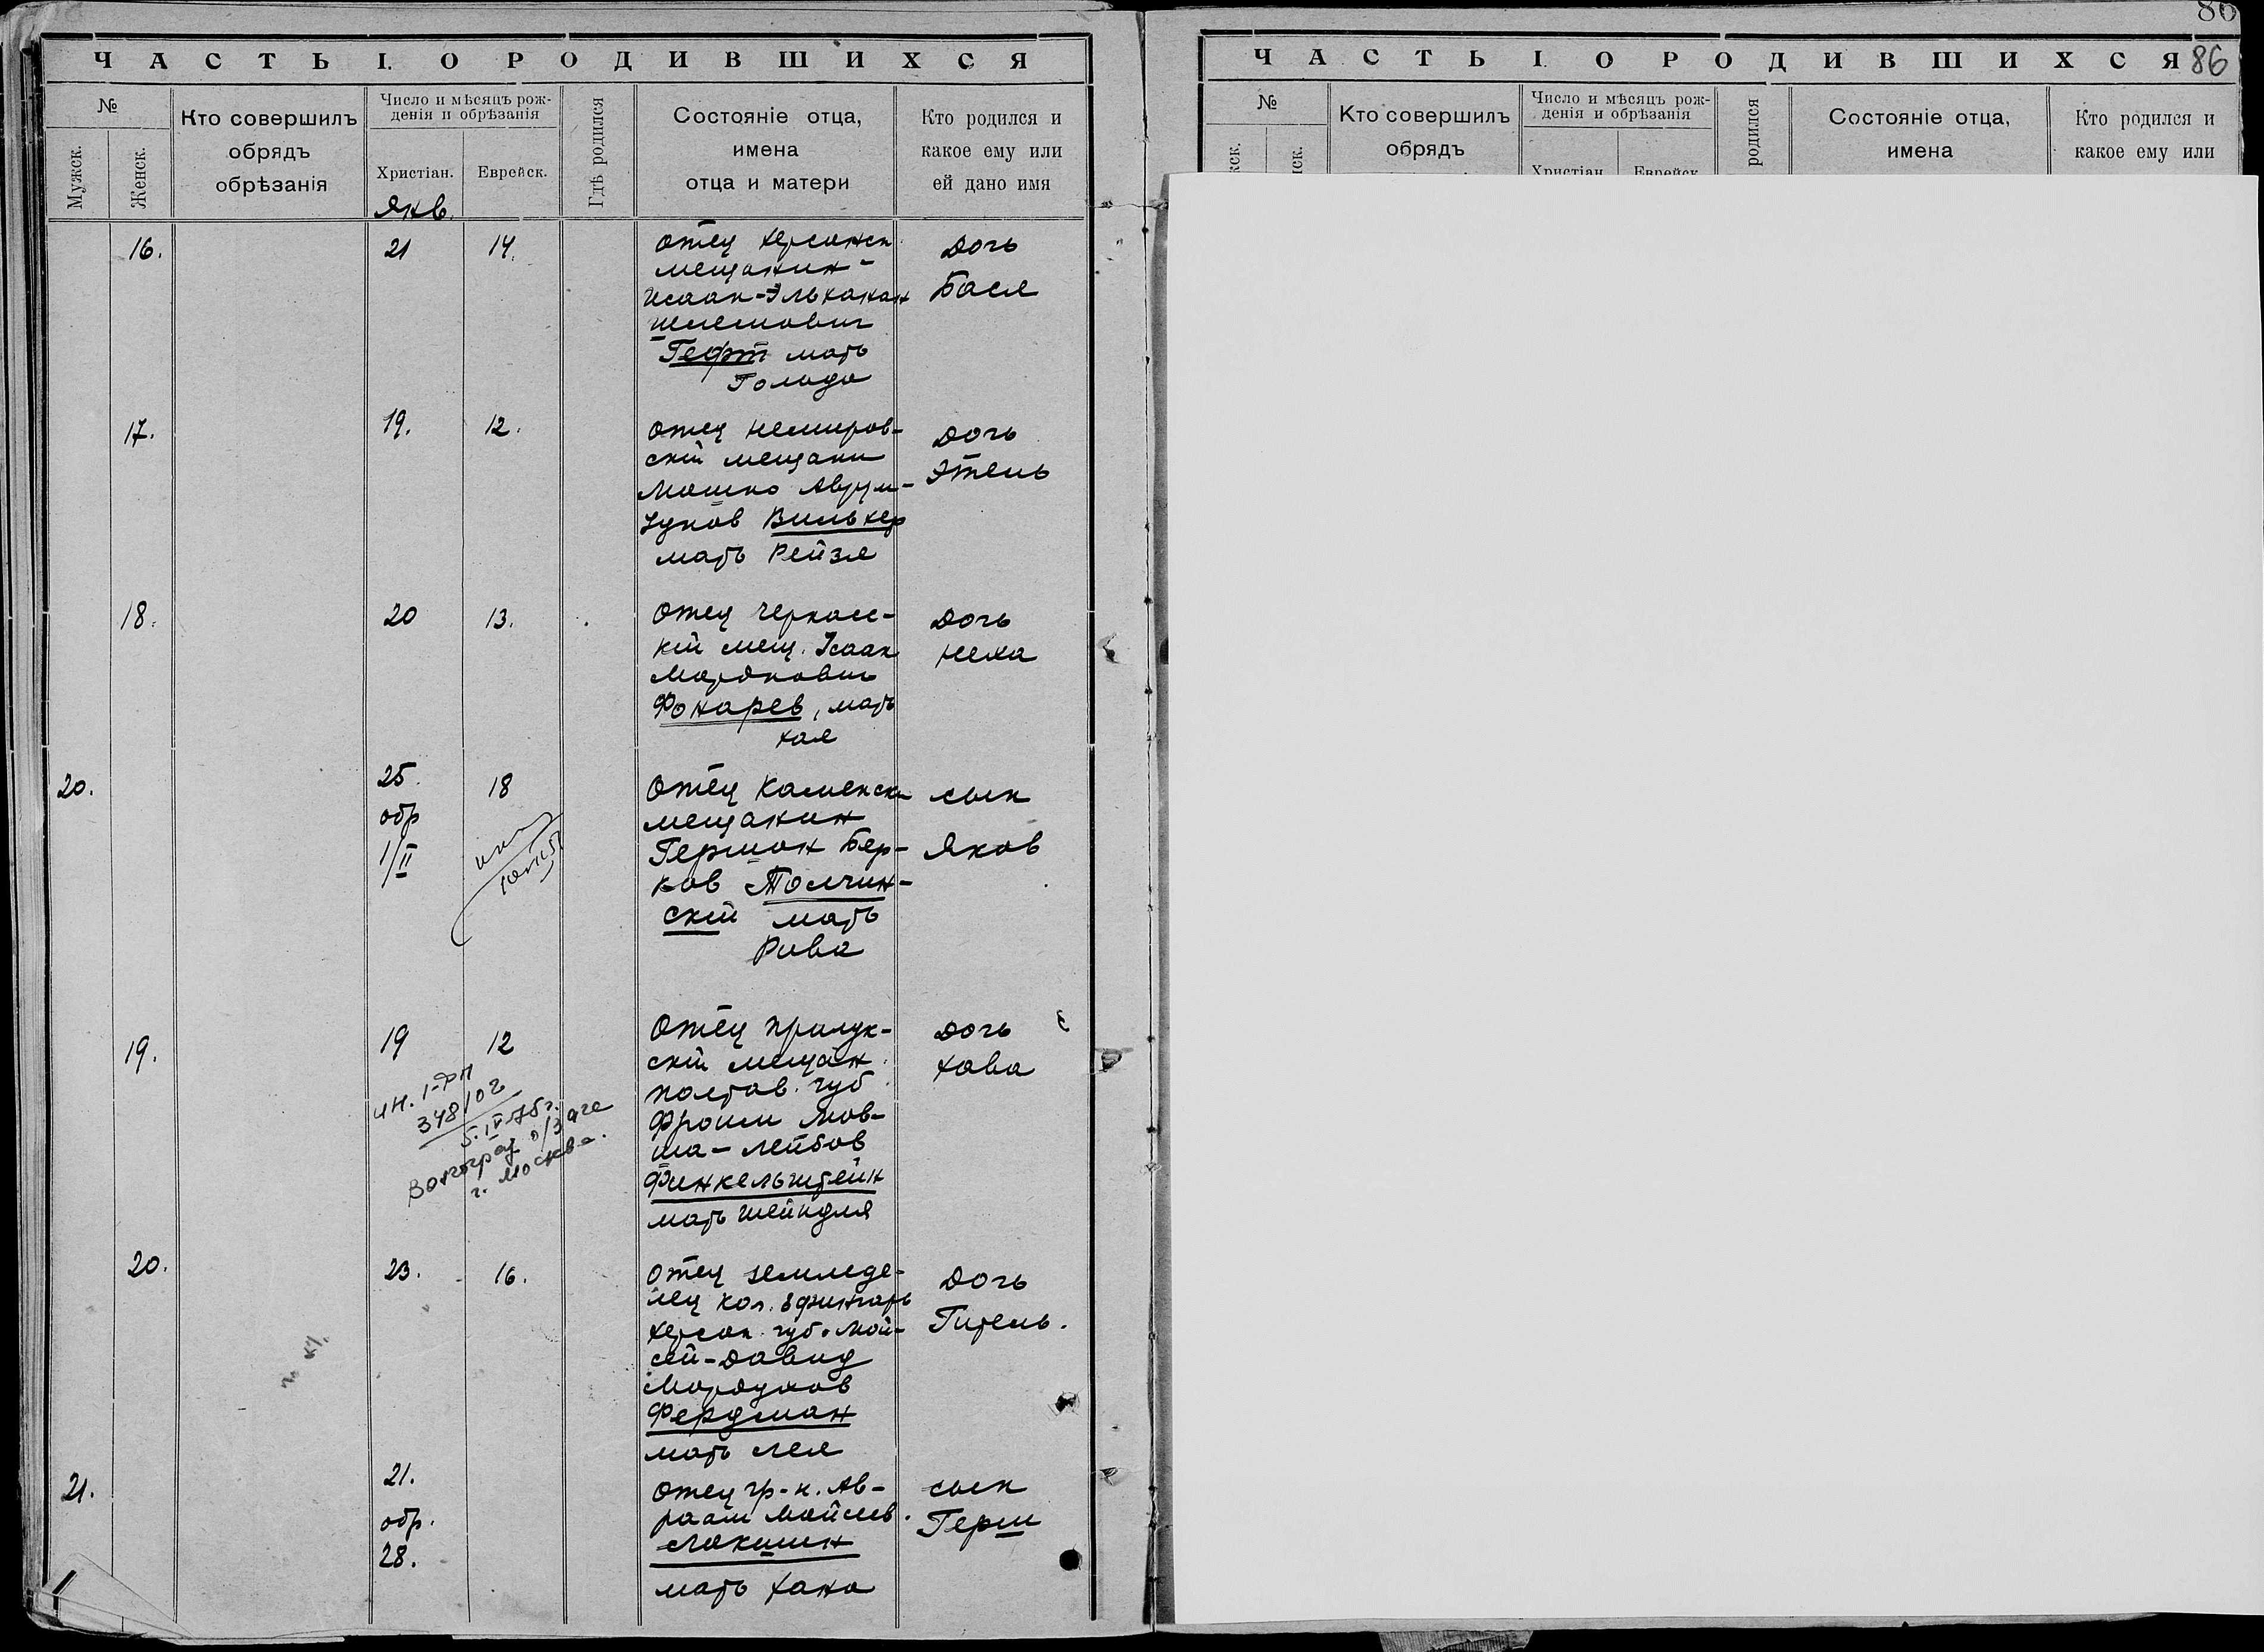 ЧАСТЬ I. О РОДИВШИХСЯ
№
Мужск.
Женск.
Кто совершилъ
обрядъ
обрѣзанія
Число и мѣсяцъ рож-
денія и обрѣзанія
Христіан.
Еврейск.
Янв.
Гдѣ родился
Состояніе отца,
имена
отца и матери
Кто родился и
какое ему или
ей дано имя
16.
21
14.
Отец херсонск
мещанин-
Исаак-Эльханан
Шлемович
Гефт мать
Гольда
Дочь
Бася
17.
19.
12.
Отец немиров-
скій мещани
Мошко Аврум-
Зунов Вильхер
мать Рейзя
Дочь
Этель
18.
20
13.
Отец черкасс-
кій мещ. Исаак
Мордкович
Фонарев, мать
Хая
Дочь
Неха
20.
25.
обр
1/II
18
Отец Каменск
мещанин
Герман Бер-
ков Толчин-
скій мать
Рива
сын
Яков
19.
19
12
ин. 1-ФП
348/02
5.IV-75г.
Волгоград о/загс
г. Москва.
Отец прилук-
скій мещан.
Полтав. губ.
Фроим Мов-
ша-Лейбов
Финкельштейн
мать Шейндля
Дочь
Хава
20.
23.
16.
Отец земледе-
лец кол. Эфингарь
Херсон. губ. Мой-
сей-Давид
Мордухов
Фердман
мать Лея
Дочь
Гитель.
21.
21.
обр.
28.
Отец гр-н. Ав-
раам Мойсев.
Локшин
мать Хана
сын
Герш
86
ЧАСТЬ I. О РОДИВШИХСЯ 86
№
Кто совершилъ
обрядъ
Число и мѣсяцъ рож-
денія и обрѣзанія
Христіан
Еврейск
родился
Состояніе отца,
имена
Кто родился и
какое ему или